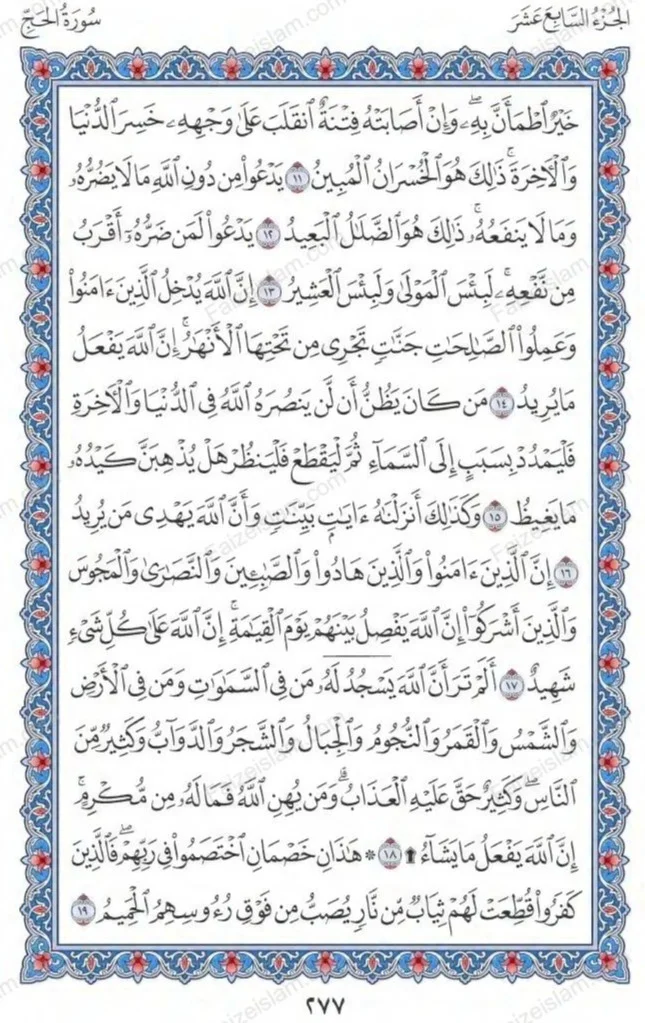 الجزء السابع عشر
سورة الحج
خَيْرٌ ٱطْمَأَنَّ بِهِۦۖ وَإِنْ أَصَابَتْهُ فِتْنَةٌ ٱنقَلَبَ عَلَىٰ وَجْهِهِۦ خَسِرَ ٱلدُّنْيَا
وَٱلْأَخِرَةَۚ ذَٰلِكَ هُوَ ٱلْخُسْرَانُ ٱلْمُبِينُ ١١ يَدْعُوا۟ مِن دُونِ ٱللَّهِ مَا لَا يَضُرُّهُۥ
وَمَا لَا يَنفَعُهُۥۚ ذَٰلِكَ هُوَ ٱلضَّلَٰلُ ٱلْبَعِيدُ ١٢ يَدْعُوا۟ لَمَن ضَرُّهُۥٓ أَقْرَبُ
مِن نَّفْعِهِۦۚ لَبِئْسَ ٱلْمَوْلَىٰ وَلَبِئْسَ ٱلْعَشِيرُ ١٣ إِنَّ ٱللَّهَ يُدْخِلُ ٱلَّذِينَ ءَامَنُوا۟
وَعَمِلُوا۟ ٱلصَّٰلِحَٰتِ جَنَّٰتٍ تَجْرِى مِن تَحْتِهَا ٱلْأَنْهَٰرُۚ إِنَّ ٱللَّهَ يَفْعَلُ
مَا يُرِيدُ ١٤ مَن كَانَ يَظُنُّ أَن لَّن يَنصُرَهُ ٱللَّهُ فِى ٱلدُّنْيَا وَٱلْأَخِرَةِ
فَلْيَمْدُدْ بِسَبَبٍ إِلَى ٱلسَّمَآءِ ثُمَّ لْيَقْطَعْ فَلْيَنظُرْ هَلْ يُذْهِبَنَّ كَيْدُهُۥ
مَا يَغِيظُ ١٥ وَكَذَٰلِكَ أَنزَلْنَٰهُ ءَايَٰتٍۭ بَيِّنَٰتٍ وَأَنَّ ٱللَّهَ يَهْدِى مَن يُرِيدُ
١٦ إِنَّ ٱلَّذِينَ ءَامَنُوا۟ وَٱلَّذِينَ هَادُوا۟ وَٱلصَّٰبِـِٔينَ وَٱلنَّصَٰرَىٰ وَٱلْمَجُوسَ
وَٱلَّذِينَ أَشْرَكُوٓا۟ إِنَّ ٱللَّهَ يَفْصِلُ بَيْنَهُمْ يَوْمَ ٱلْقِيَٰمَةِۚ إِنَّ ٱللَّهَ عَلَىٰ كُلِّ شَىْءٍ
شَهِيدٌ ١٧ أَلَمْ تَرَ أَنَّ ٱللَّهَ يَسْجُدُ لَهُۥ مَن فِى ٱلسَّمَٰوَٰتِ وَمَن فِى ٱلْأَرْضِ
وَٱلشَّمْسُ وَٱلْقَمَرُ وَٱلنُّجُومُ وَٱلْجِبَالُ وَٱلشَّجَرُ وَٱلدَّوَآبُّ وَكَثِيرٌ مِّنَ
ٱلنَّاسِۖ وَكَثِيرٌ حَقَّ عَلَيْهِ ٱلْعَذَابُۗ وَمَن يُهِنِ ٱللَّهُ فَمَا لَهُۥ مِن مُّكْرِمٍۚ
إِنَّ ٱللَّهَ يَفْعَلُ مَا يَشَآءُ ۩ ١٨ ۞ هَٰذَانِ خَصْمَانِ ٱخْتَصَمُوا۟ فِى رَبِّهِمْۖ فَٱلَّذِينَ
كَفَرُوا۟ قُطِّعَتْ لَهُمْ ثِيَابٌ مِّن نَّارٍ يُصَبُّ مِن فَوْقِ رُءُوسِهِمُ ٱلْحَمِيمُ ١٩
٢٧٧
Faizeislam.com